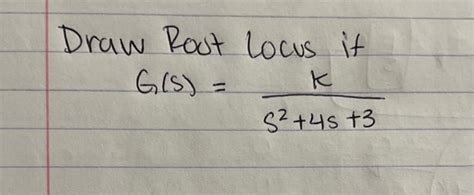 Draw Root Locus if
G(s) = K
s²+4s+3